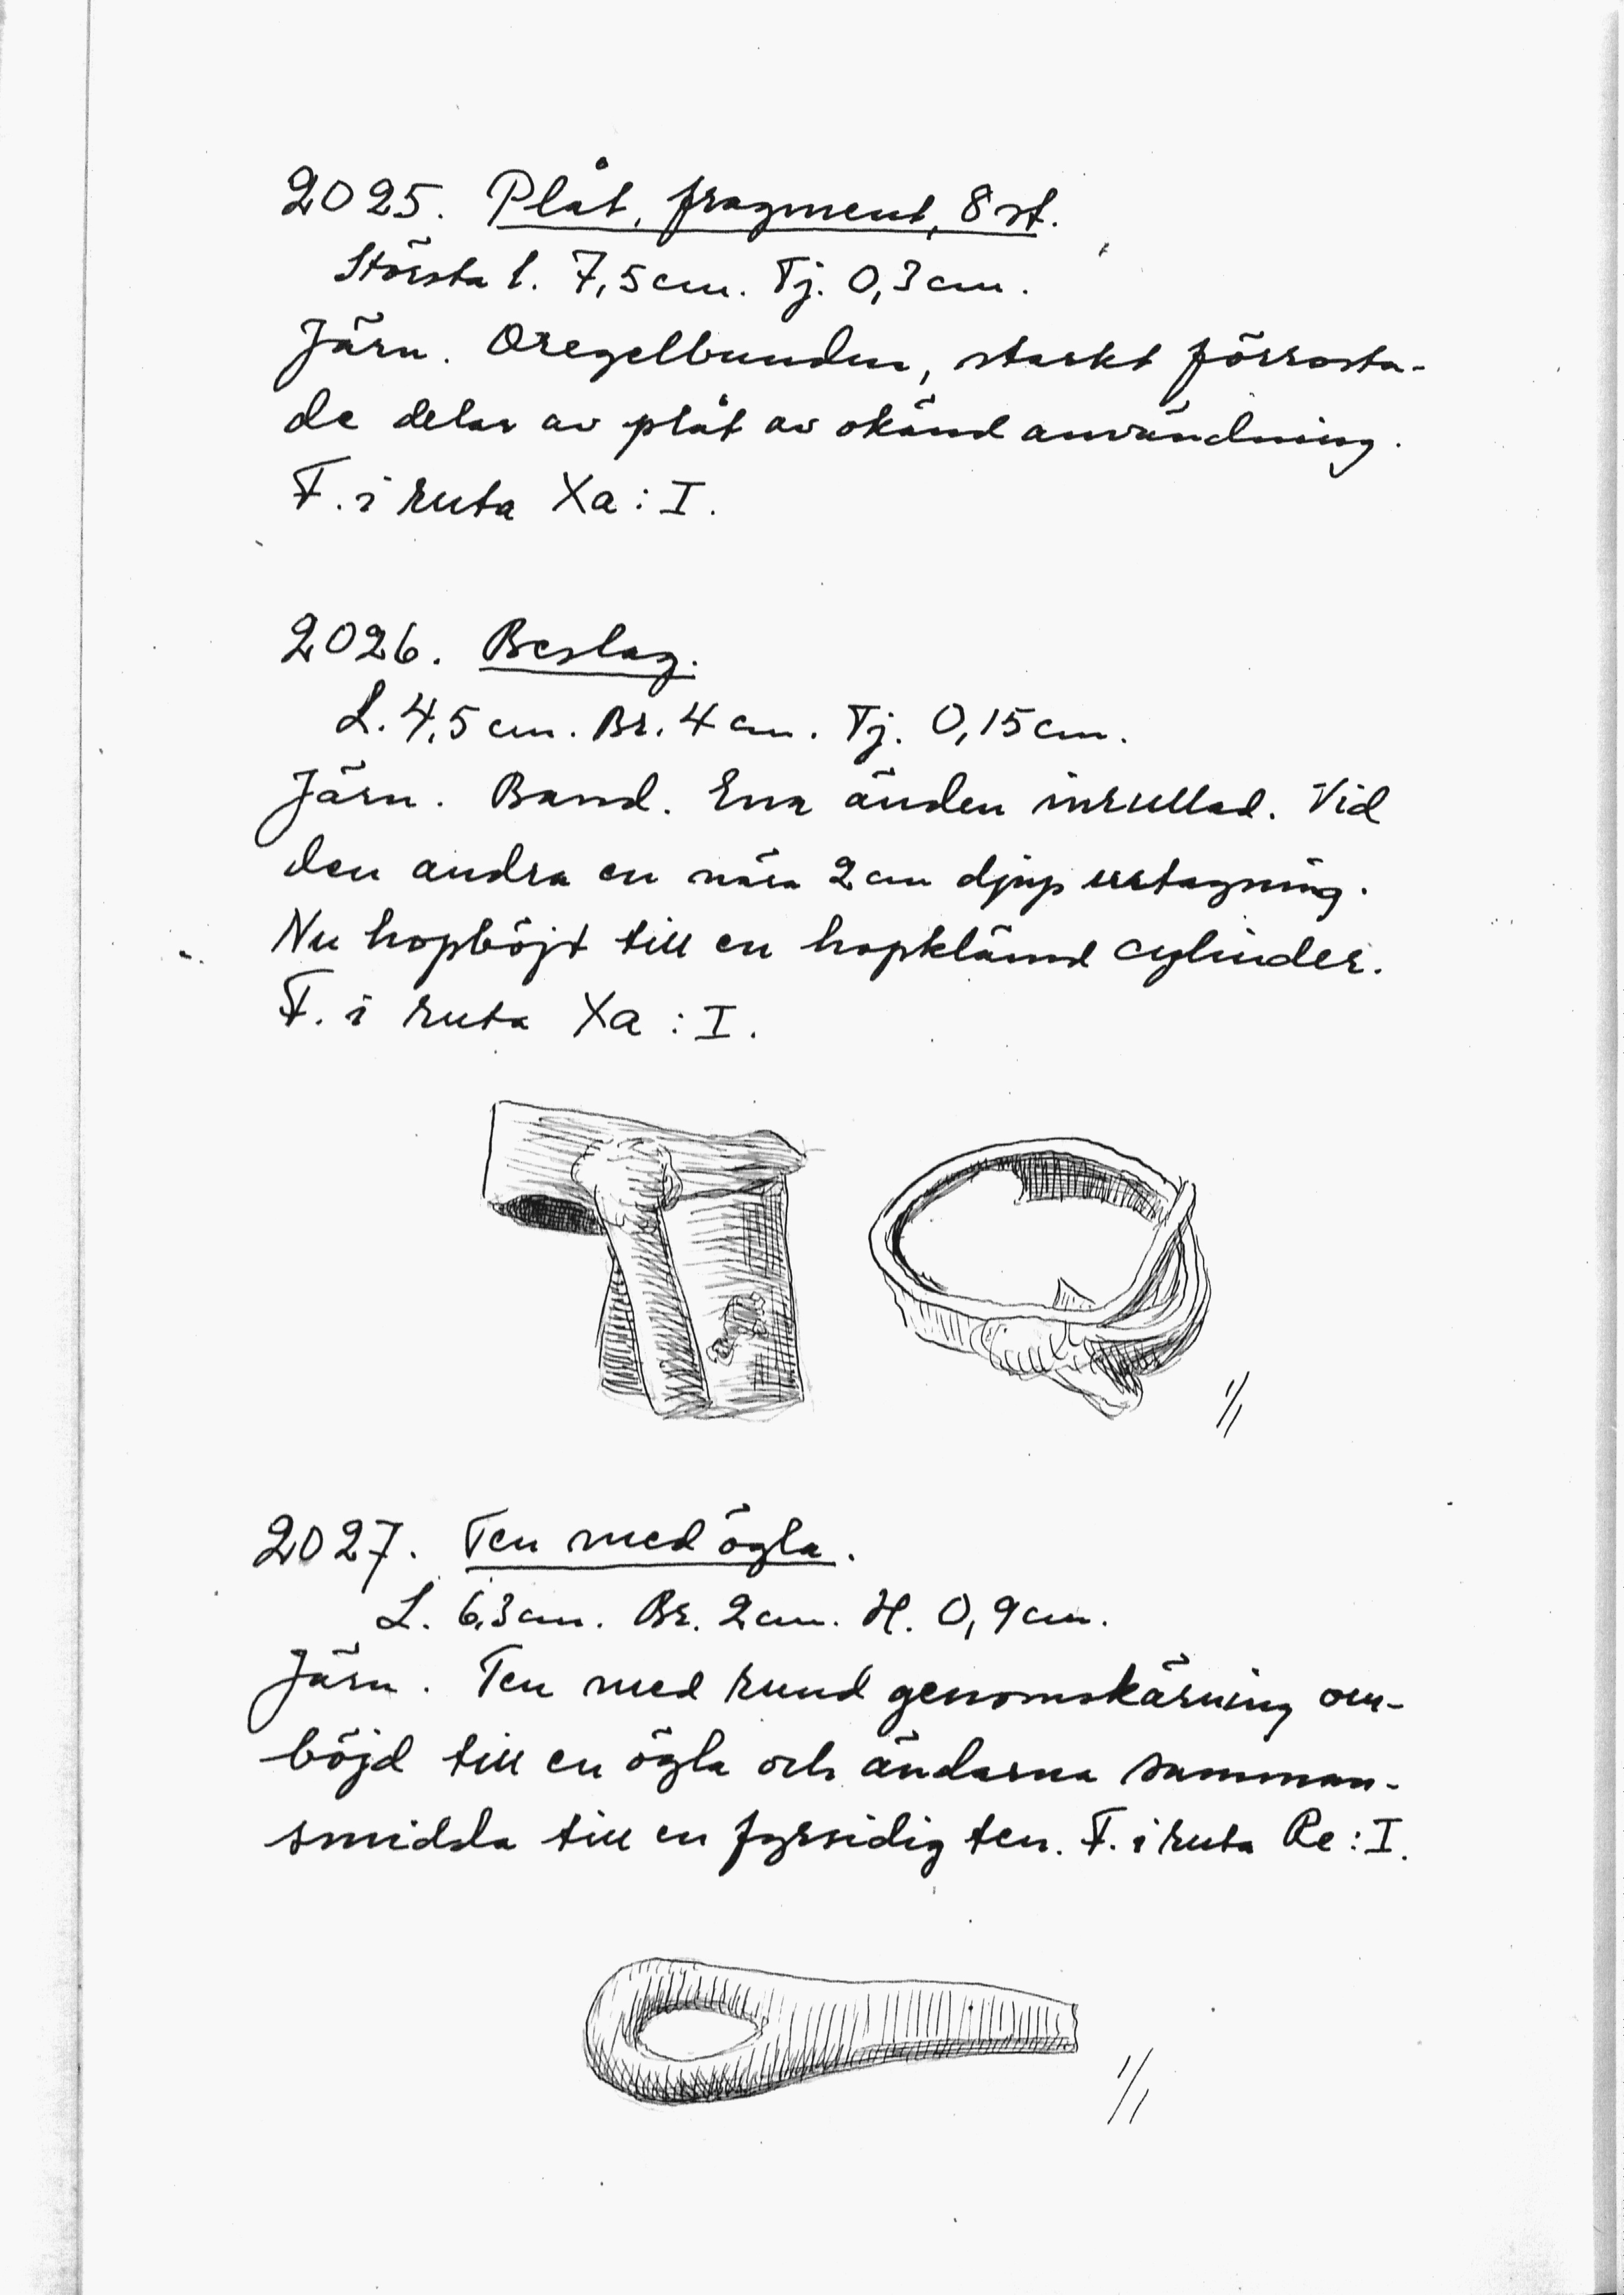 2025. Plåt, fragment, 8 st.
Största l. 7,5 cm. Tj. 0,3 cm.
Järn. Oregelbundna, starkt förrosta-
de delar av plåt av okänd användning.
F. i ruta Xa : I.
2026. Beslag.
L. 4,5 cm. Br. 4 cm. Tj. 0,15 cm.
Järn. Band. Ena änden inrullad. Vid
den andra en nära 2 cm djup urtagning.
Nu hopböjt till en hopklämd cylinder.
F. i ruta Xa : I.
1/1
2027. Ten med ögla.
L. 6,3 cm. Br. 2 cm. H. 0,9 cm.
Järn. Ten med rund genomskärning om-
böjd till en ögla och ändarna samman-
smidda till en fyrsidig ten. F. i ruta Re : I.
1/1